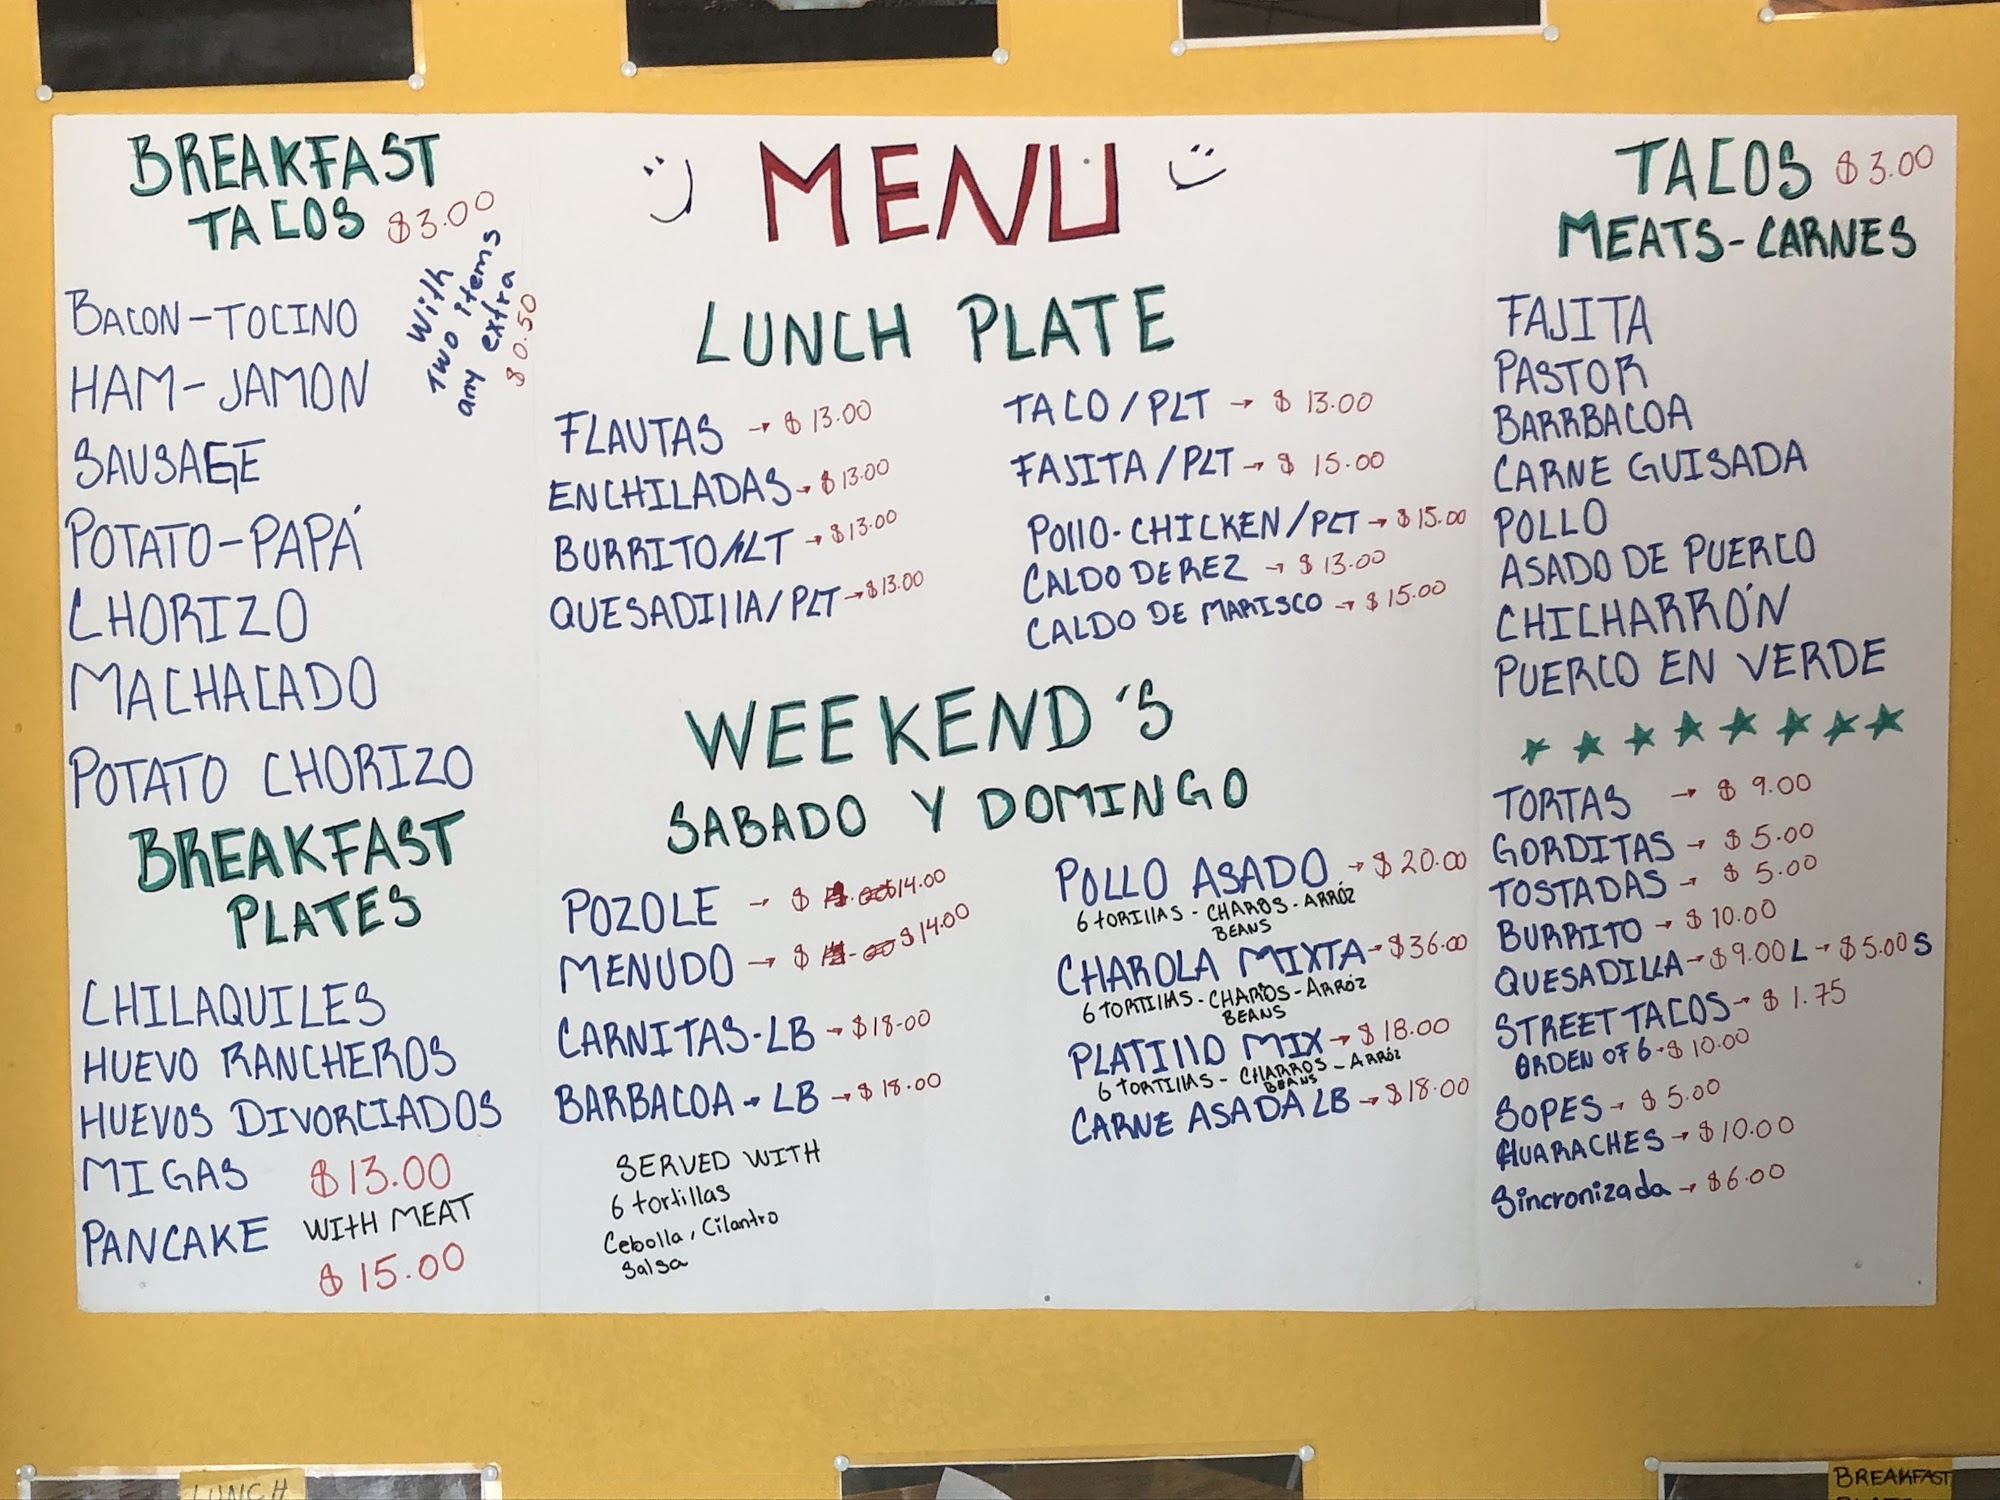 BREAKFAST
TACOS $3.00
With
two items
any extra
$0.50
BACON-TOCINO
HAM-JAMON
SAUSAGE
POTATO-PAPÁ
CHORIZO
MACHACADO
POTATO CHORIZO
BREAKFAST
PLATES
CHILAQUILES
HUEVO RANCHEROS
HUEVOS DIVORCIADOS
MIGAS $13.00
PANCAKE WITH MEAT
$15.00
MENU
LUNCH PLATE
FLAUTAS → $13.00
ENCHILADAS → $13.00
BURRITO/PLT → $13.00
QUESADIllA/PLT → $13.00
TACO/PLT → $13.00
FAJITA/PLT → $15.00
POllO-CHICKEN/PLT → $15.00
CALDO DE REZ → $13.00
CALDO DE MARISCO → $15.00
WEEKEND'S
SABADO Y DOMINGO
POZOLE → $ $14.00
MENUDO → $ $14.00
CARNITAS-LB → $18.00
BARBACOA - LB → $18.00
SERVED WITH
6 tortillas
Cebolla, Cilantro
Salsa
POLLO ASADO → $20.00
6 TORIllAS - CHAROS - ARRÓZ
BEANS
CHAROLA MIXTA → $36.00
6 TORTIllAS - CHAROS - ARRÓZ
BEANS
PLATIllO MIX → $18.00
6 TORTIllAS - CHARROS - ARRÓZ
BEANS
CARNE ASADA LB → $18.00
TACOS $3.00
MEATS-CARNES
FAJITA
PASTOR
BARRBACOA
CARNE GUISADA
POLLO
ASADO DE PUERCO
CHICHARRÓN
PUERCO EN VERDE
TORTAS → $9.00
GORDITAS → $5.00
TOSTADAS → $5.00
BURRITO → $10.00
QUESADILLA → $9.00 L → $5.00 S
STREET TACOS → $1.75
ORDEN OF 6 → $10.00
SOPES → $5.00
HUARACHES → $10.00
Sincronizada → $6.00
LUNCH
BREAKFAST